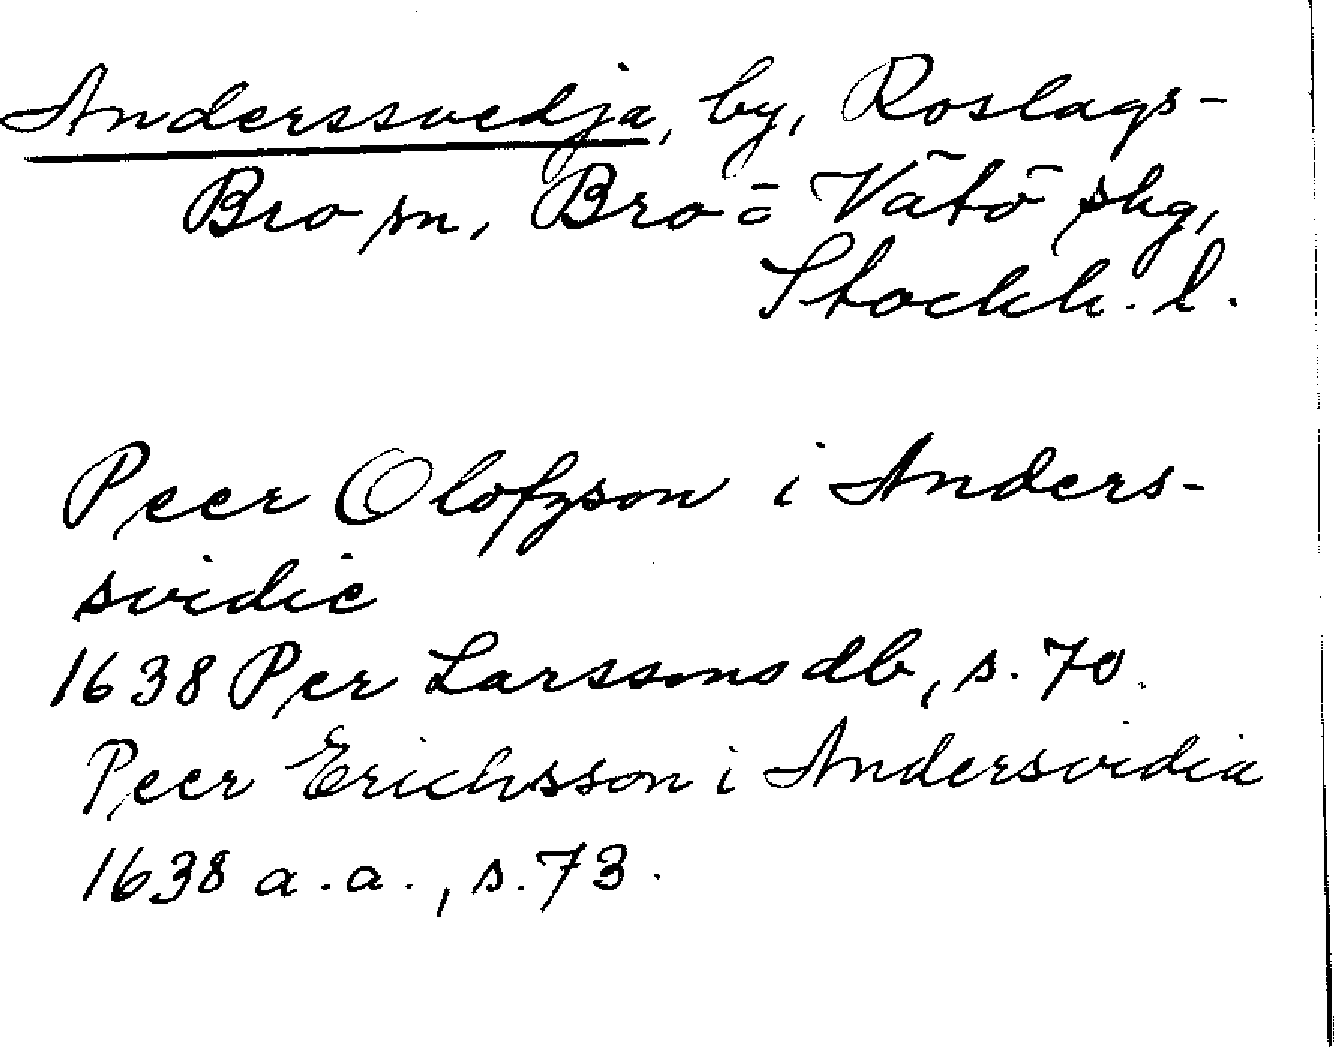 Anderssvedja, by, Roslags-
Bro sn, Bro o Vätö skg,
Stockh. l.
Peer Olofzson i Anders-
svidie
1638 Per Larssons db, s. 70.
Peer Erichsson i Andersvidia
1638 a.a., s. 73.